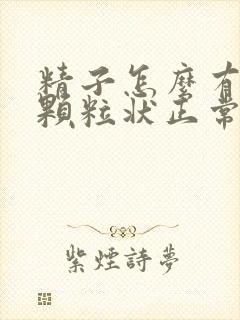 精子怎麼有
顆粒狀正常
紫煙詩夢